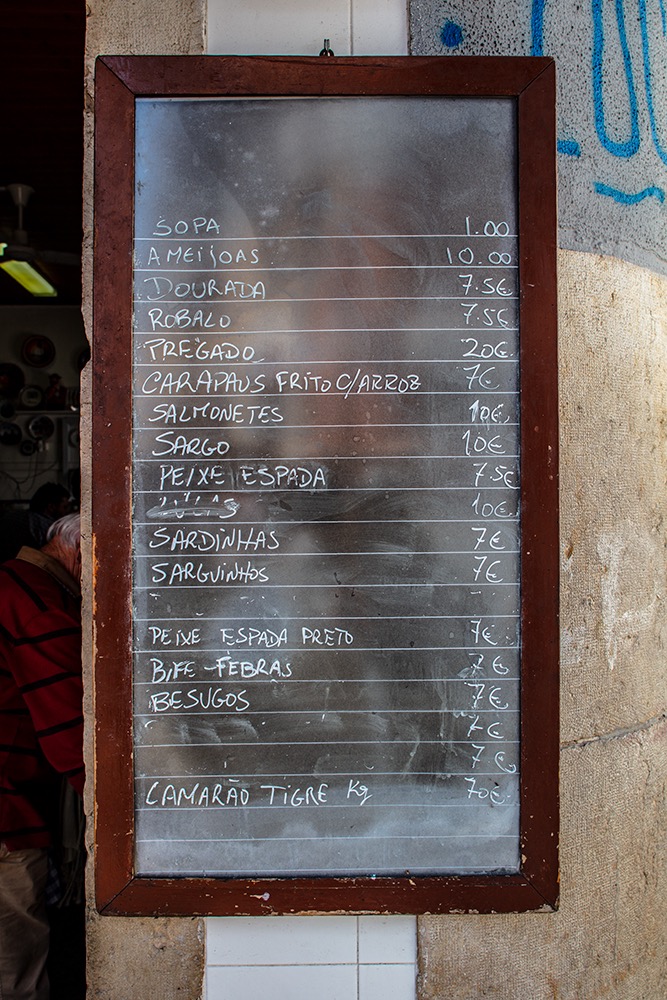 SOPA 1.00
AMEIJOAS 10.00
DOURADA 7.5€
ROBALO 7.5€
PREGADO 20€
CARAPAUS FRITO C/ARROZ 7€
SALMONETES 10€
SARGO 10€
PEIXE ESPADA 7.5€
10€
SARDINHAS 7€
SARGUINHOS 7€
PEIXE ESPADA PRETO 7€
BIFE-FEBRAS 7€
BESUGOS 7€
7€
7€
CAMARÃO TIGRE Kg 70€